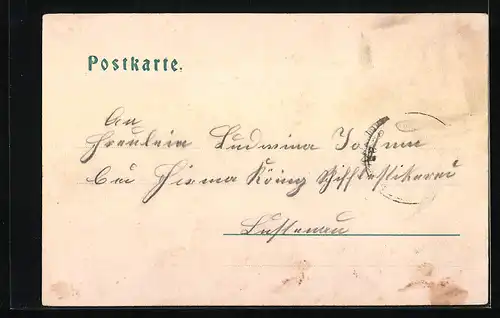 Postkarte.
An
Freulein Ludwina
bei Firma König Schifflestikerei
Lustenau